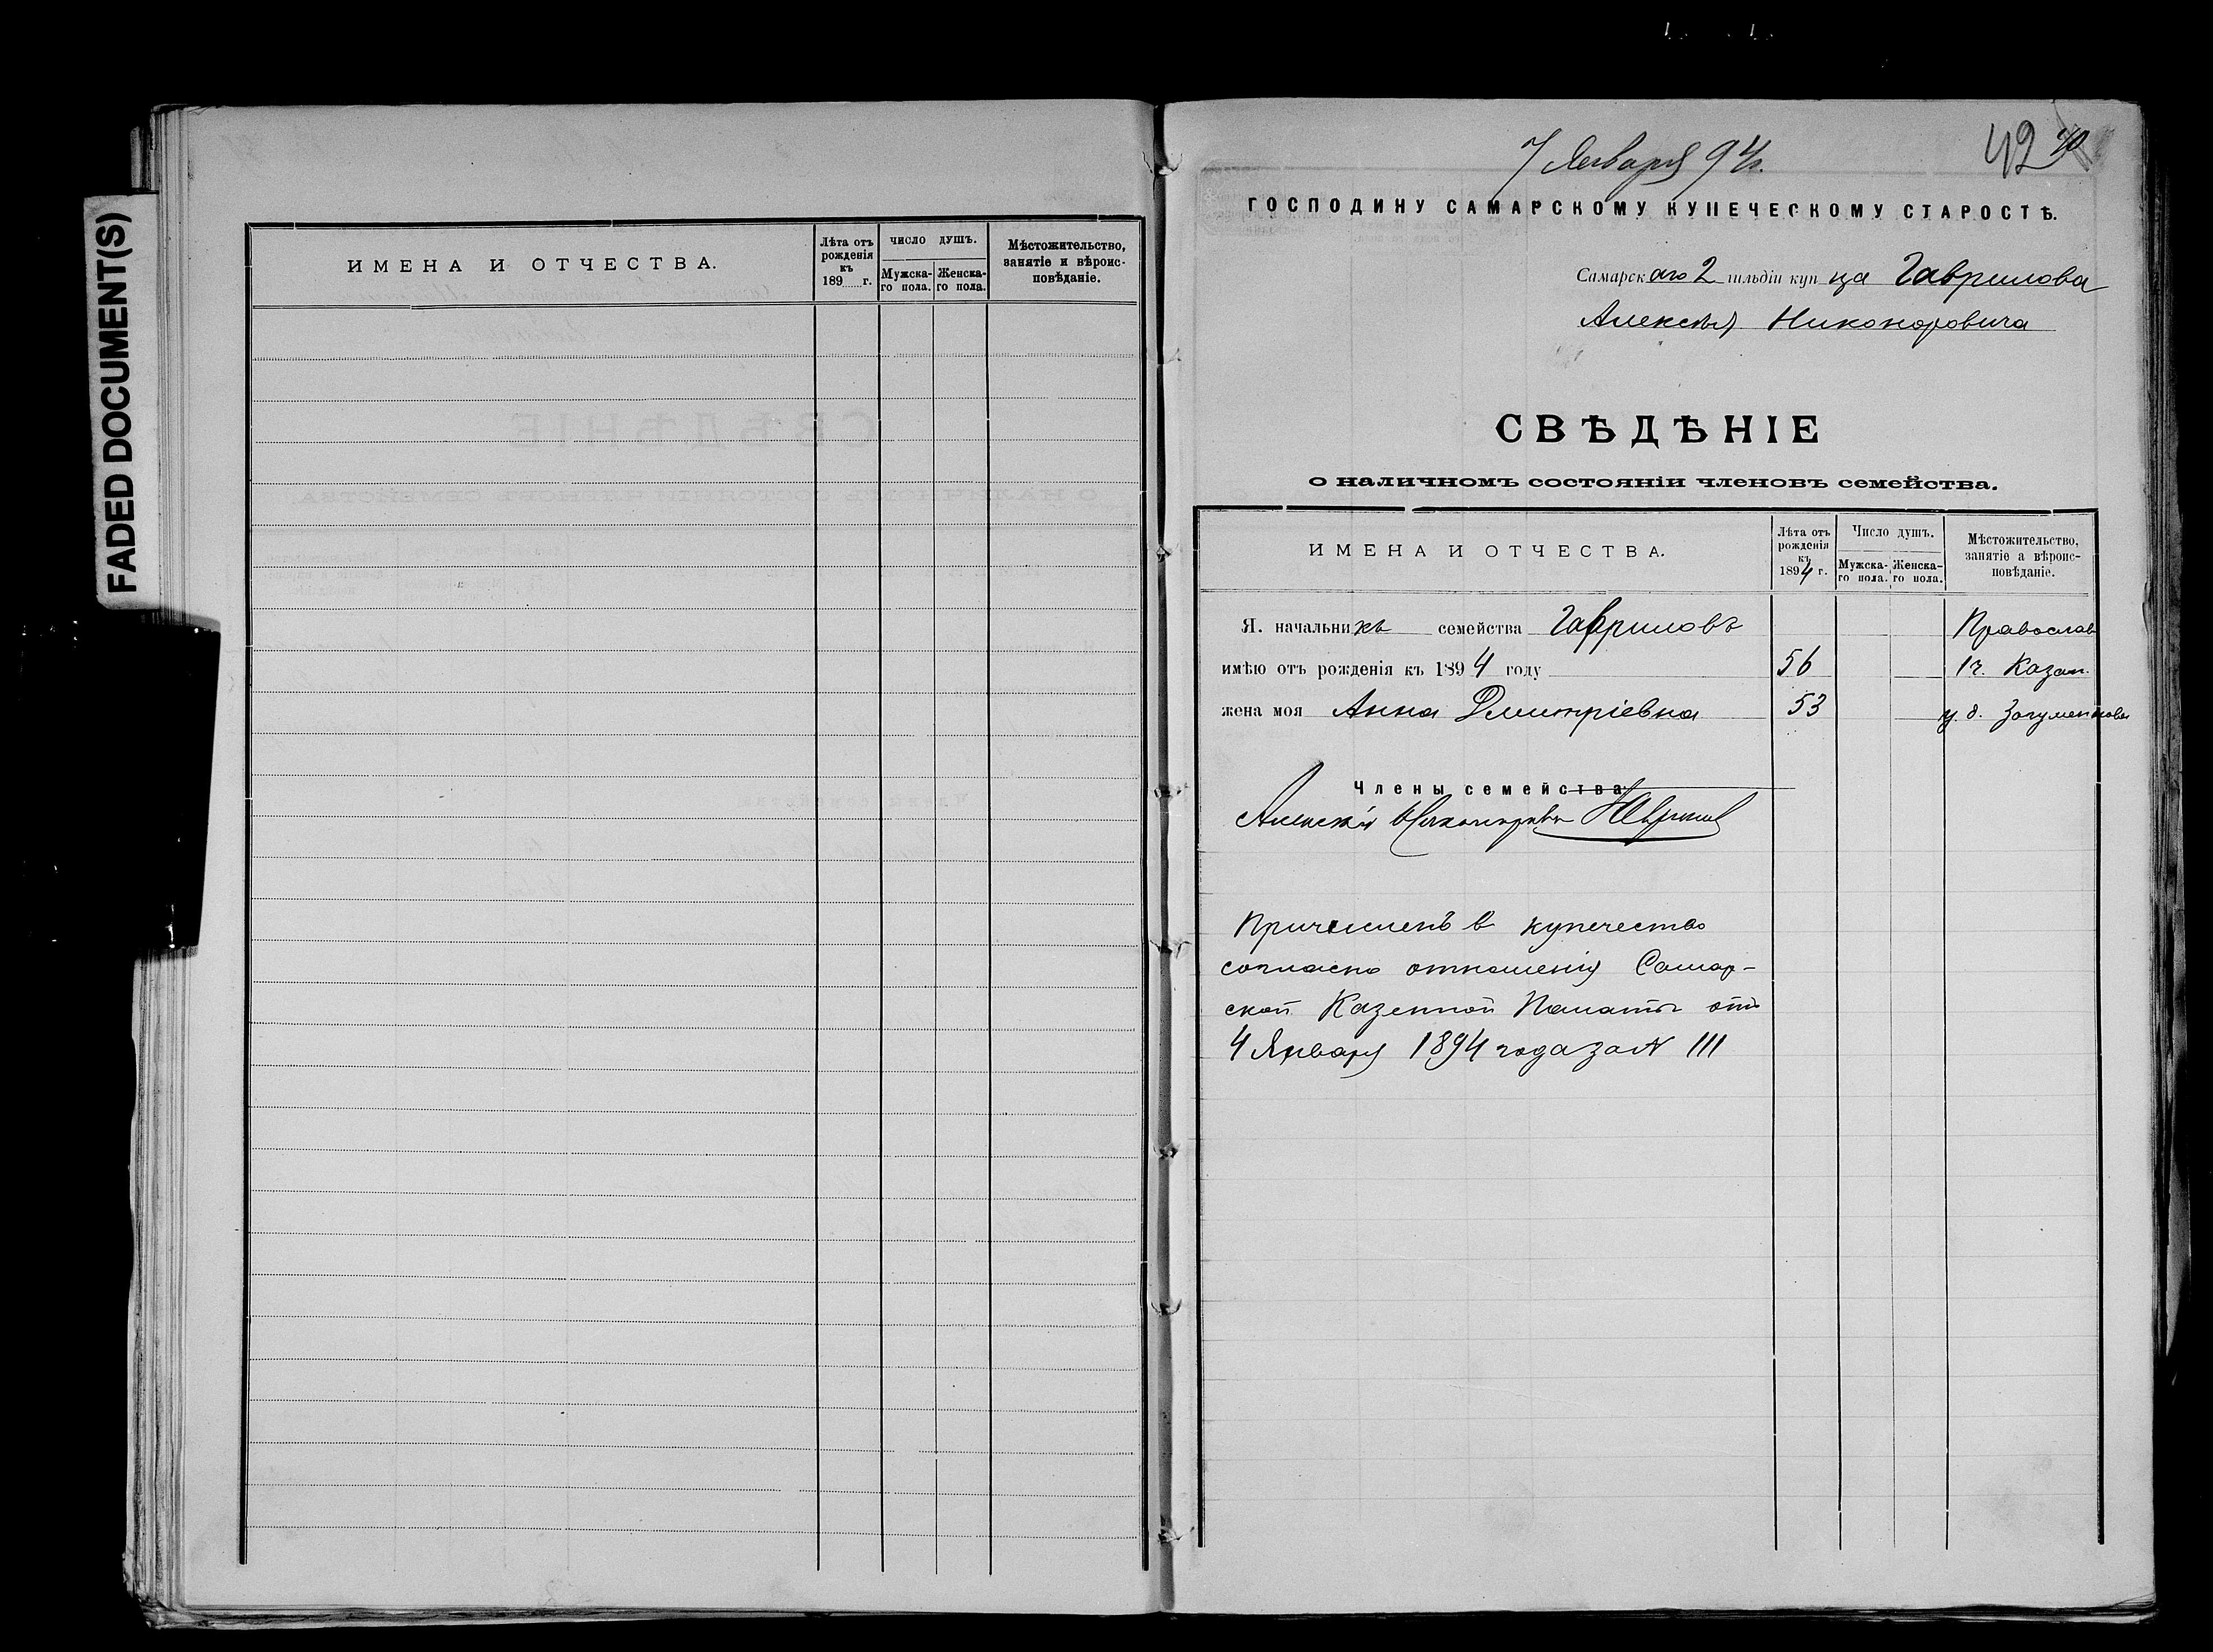 FADED DOCUMENT(S)
ИМЕНА И ОТЧЕСТВА.
Лѣта отъ рожденія къ 189 г.
ЧИСЛО ДУШЪ.
Мужска-го пола.
Женска-го пола.
Мѣстожительство, занятіе и вѣроис-повѣданіе.
7 Января 94 г.
42 40
ГОСПОДИНУ САМАРСКОМУ КУПЕЧЕСКОМУ СТАРОСТѢ.
Самарскаго 2 гильдіи купца Гаврилова
Алексѣя Никоноровича
СВѢДѢНІЕ
о наличномъ состояніи членовъ семейства.
ИМЕНА И ОТЧЕСТВА.
Лѣта отъ рожденія къ 1894 г.
Число душъ.
Мужска-го пола.
Женска-го пола.
Мѣстожительство, занятіе а вѣроис-повѣданіе.
Я. начальникъ семейства Гавриловъ Православ
имѣю отъ рожденія къ 1894 году 56 1 ч. Казан.
жена моя Анна Дмитріевна 53 у. д.
Члены семейства
Алексѣй Никоноровъ Гаврилов
Причисленъ в купечество
согласно отношенія Самар-
ской Казенной Палаты отъ
4 Января 1894 года за № 111